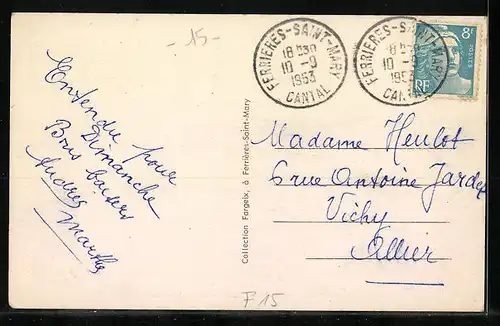 - 15 -
FERRIÈRES-SAINT-MARY
18 H30
10 - 9
1953
CANTAL
FERRIÈRES-SAINT-MARY
18 H30
10 - 9
1953
CANTAL
8F
POSTES
RF
Entendu pour
Dimanche
Bons baisers
Marthe
Collection Fargeix, à Ferrières-Saint-Mary
Madame Heulot
6 rue Antoine Jardet
Vichy
Allier
F 15